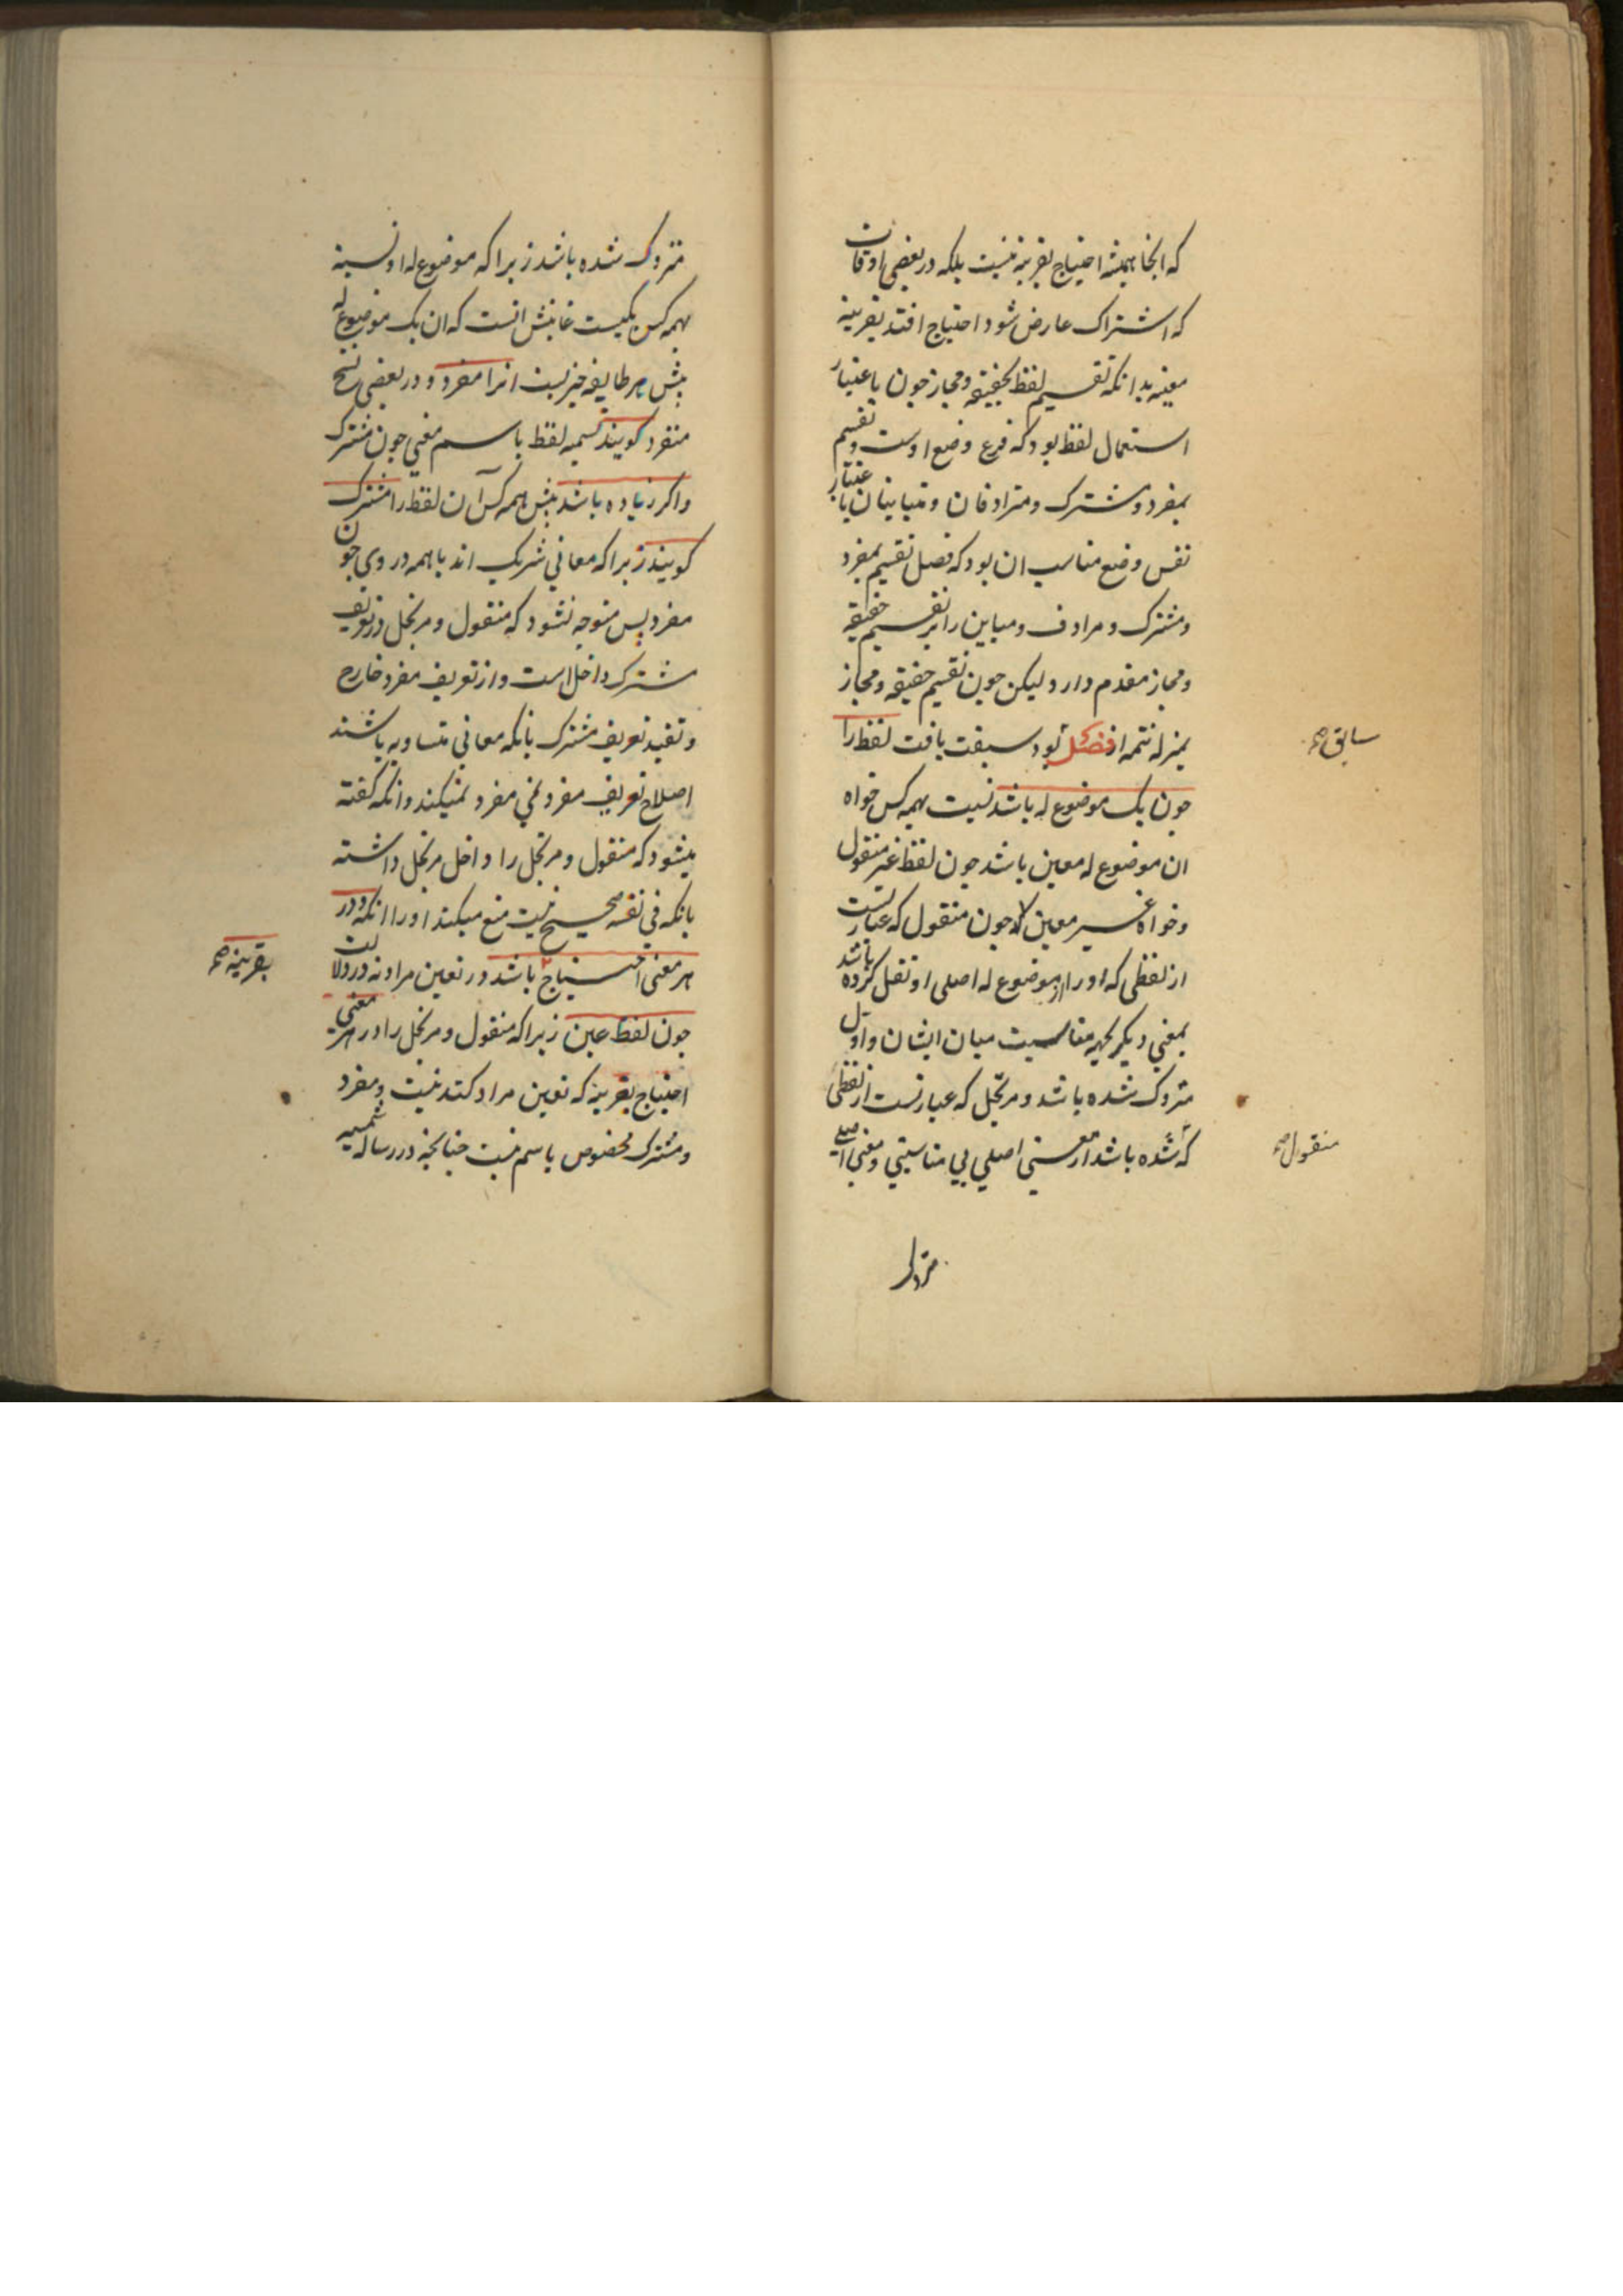 که انجا همیشه احتیاج بقرینه نیست بلکه در بعضی اوقات
که اشتراک عارض شود احتیاج افتد بقرینه
معینه بدانکه تقسیم لفظ بحقیقه ومجاز چون باعتبار
استعمال لفظ بود که فرع وضع اوست وتقسیم
بمفرد ومشترک ومترادفان ومتباینان باعتبار
نفس وضع مناسب ان بود که فصل تقسیم بمفرد
ومشترک ومرادف ومباین را بر تقسیم حقیقه
ومجاز مقدم دارد لیکن چون تقسیم حقیقه ومجاز
بمنزله تتمه از فصل بود سبقت یافت لفظ را
سابق صح
چون یک موضوع له باشد نسبت بهمه کس خواه
ان موضوع له معین باشد چون لفظ غیر منقول
وخواه غیر معین چون منقول که عبارتست
از لفظی که او را از موضوع له اصلی او نقل کرده باشد
بمعنی دیکر بجهه مناسبت میان ایشان واول
متروک شده باشد ومرتجل که عبارتست از لفظی
که شده باشد از معنی اصلی بی مناسبتی ومعنی اصلی
منقول صح
متروک
متروک شده باشد زیرا که موضوع له او نسبة
بهمه کس یکیست غایتش انست که ان یک موضوع له
پیش هر طایفه چیزیست انرا مفرد ودر بعضی نسخ
منفرد کویند تسمیه لفظ باسم معنی چون مشترک
واکر زیاده باشد پیش همه کس آن لفظ را مشترک
کویند زیرا که معانی شریک اند باهمه در وی چون
مفرد پس متوجه نشود که منقول ومرتجل در تعریف
مشترک داخل است واز تعریف مفرد خارج
وتقیید تعریف مشترک بانکه معانی متساویه باشند
اصلاح تعریف مفرد نمیکند وانکه کفته
میشود که منقول ومرتجل را داخل مرتجل داشته
بانکه فی نفسه صحیح نیست منع میکند او را انکه ودر
هر معنی احتیاج باشد در تعین مراد نه در دلالت
بقرینه صح
چون لفظ عین زیرا که منقول ومرتجل را در هر معنی
احتیاج بقرینه که تعین مراد کند نیست ومفرد
ومشترک مخصوص باسم نیست چنانچه در رساله شمسیه